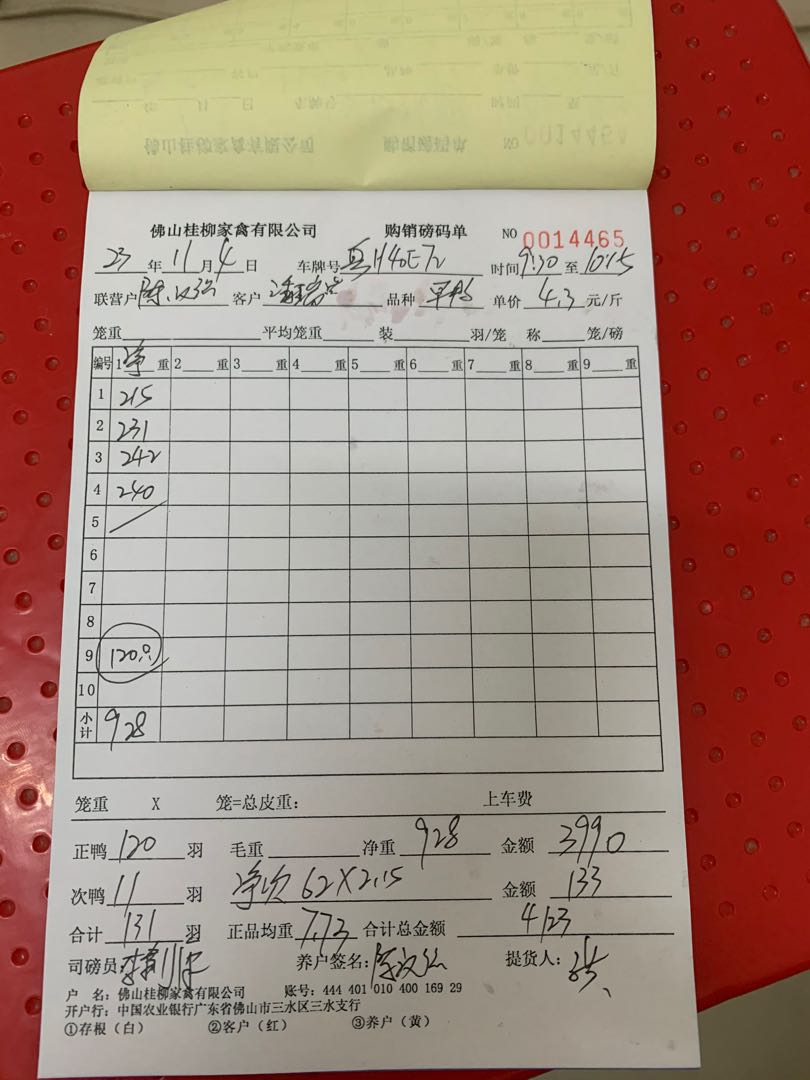 佛山桂柳家禽有限公司 购销磅码单 NO 0014465
23年11月4日 车牌号 时间9:30至10:15
联营户 客户 品种 单价4.3元/斤
笼重 平均笼重 装 羽/笼 称 笼/磅
编号 1净重 2 重 3 重 4 重 5 重 6 重 7 重 8 重 9 重
1 215
2 231
3 242
4 240
5
6
7
8
9 120只
10
小计 928
笼重 X 笼=总皮重: 上车费
正鸭120羽 毛重 净重928 金额3990
次鸭11羽 净次 62X2.15 金额133
合计131羽 正品均重7.73 合计总金额4123
司磅员: 养户签名: 提货人:
户 名: 佛山桂柳家禽有限公司 账号: 444 401 010 400 169 29
开户行: 中国农业银行广东省佛山市三水区三水支行
①存根(白) ②客户(红) ③养户(黄)